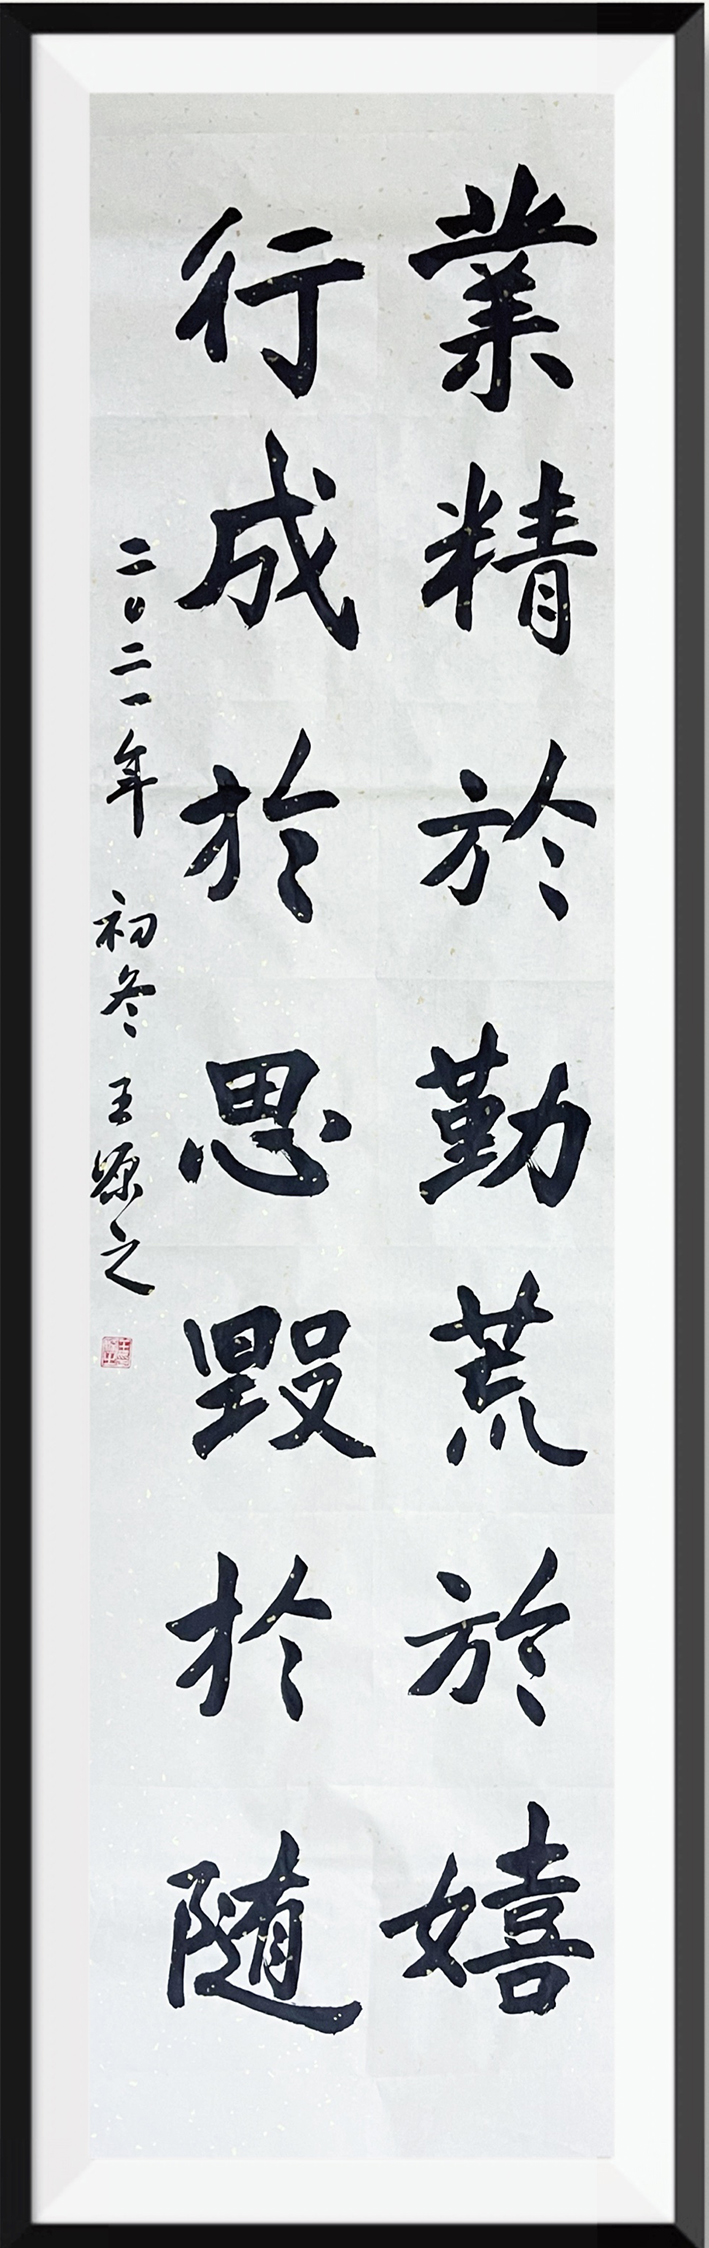 業精於勤荒於嬉
行成於思毀於随
二〇二一年 初冬 王源之